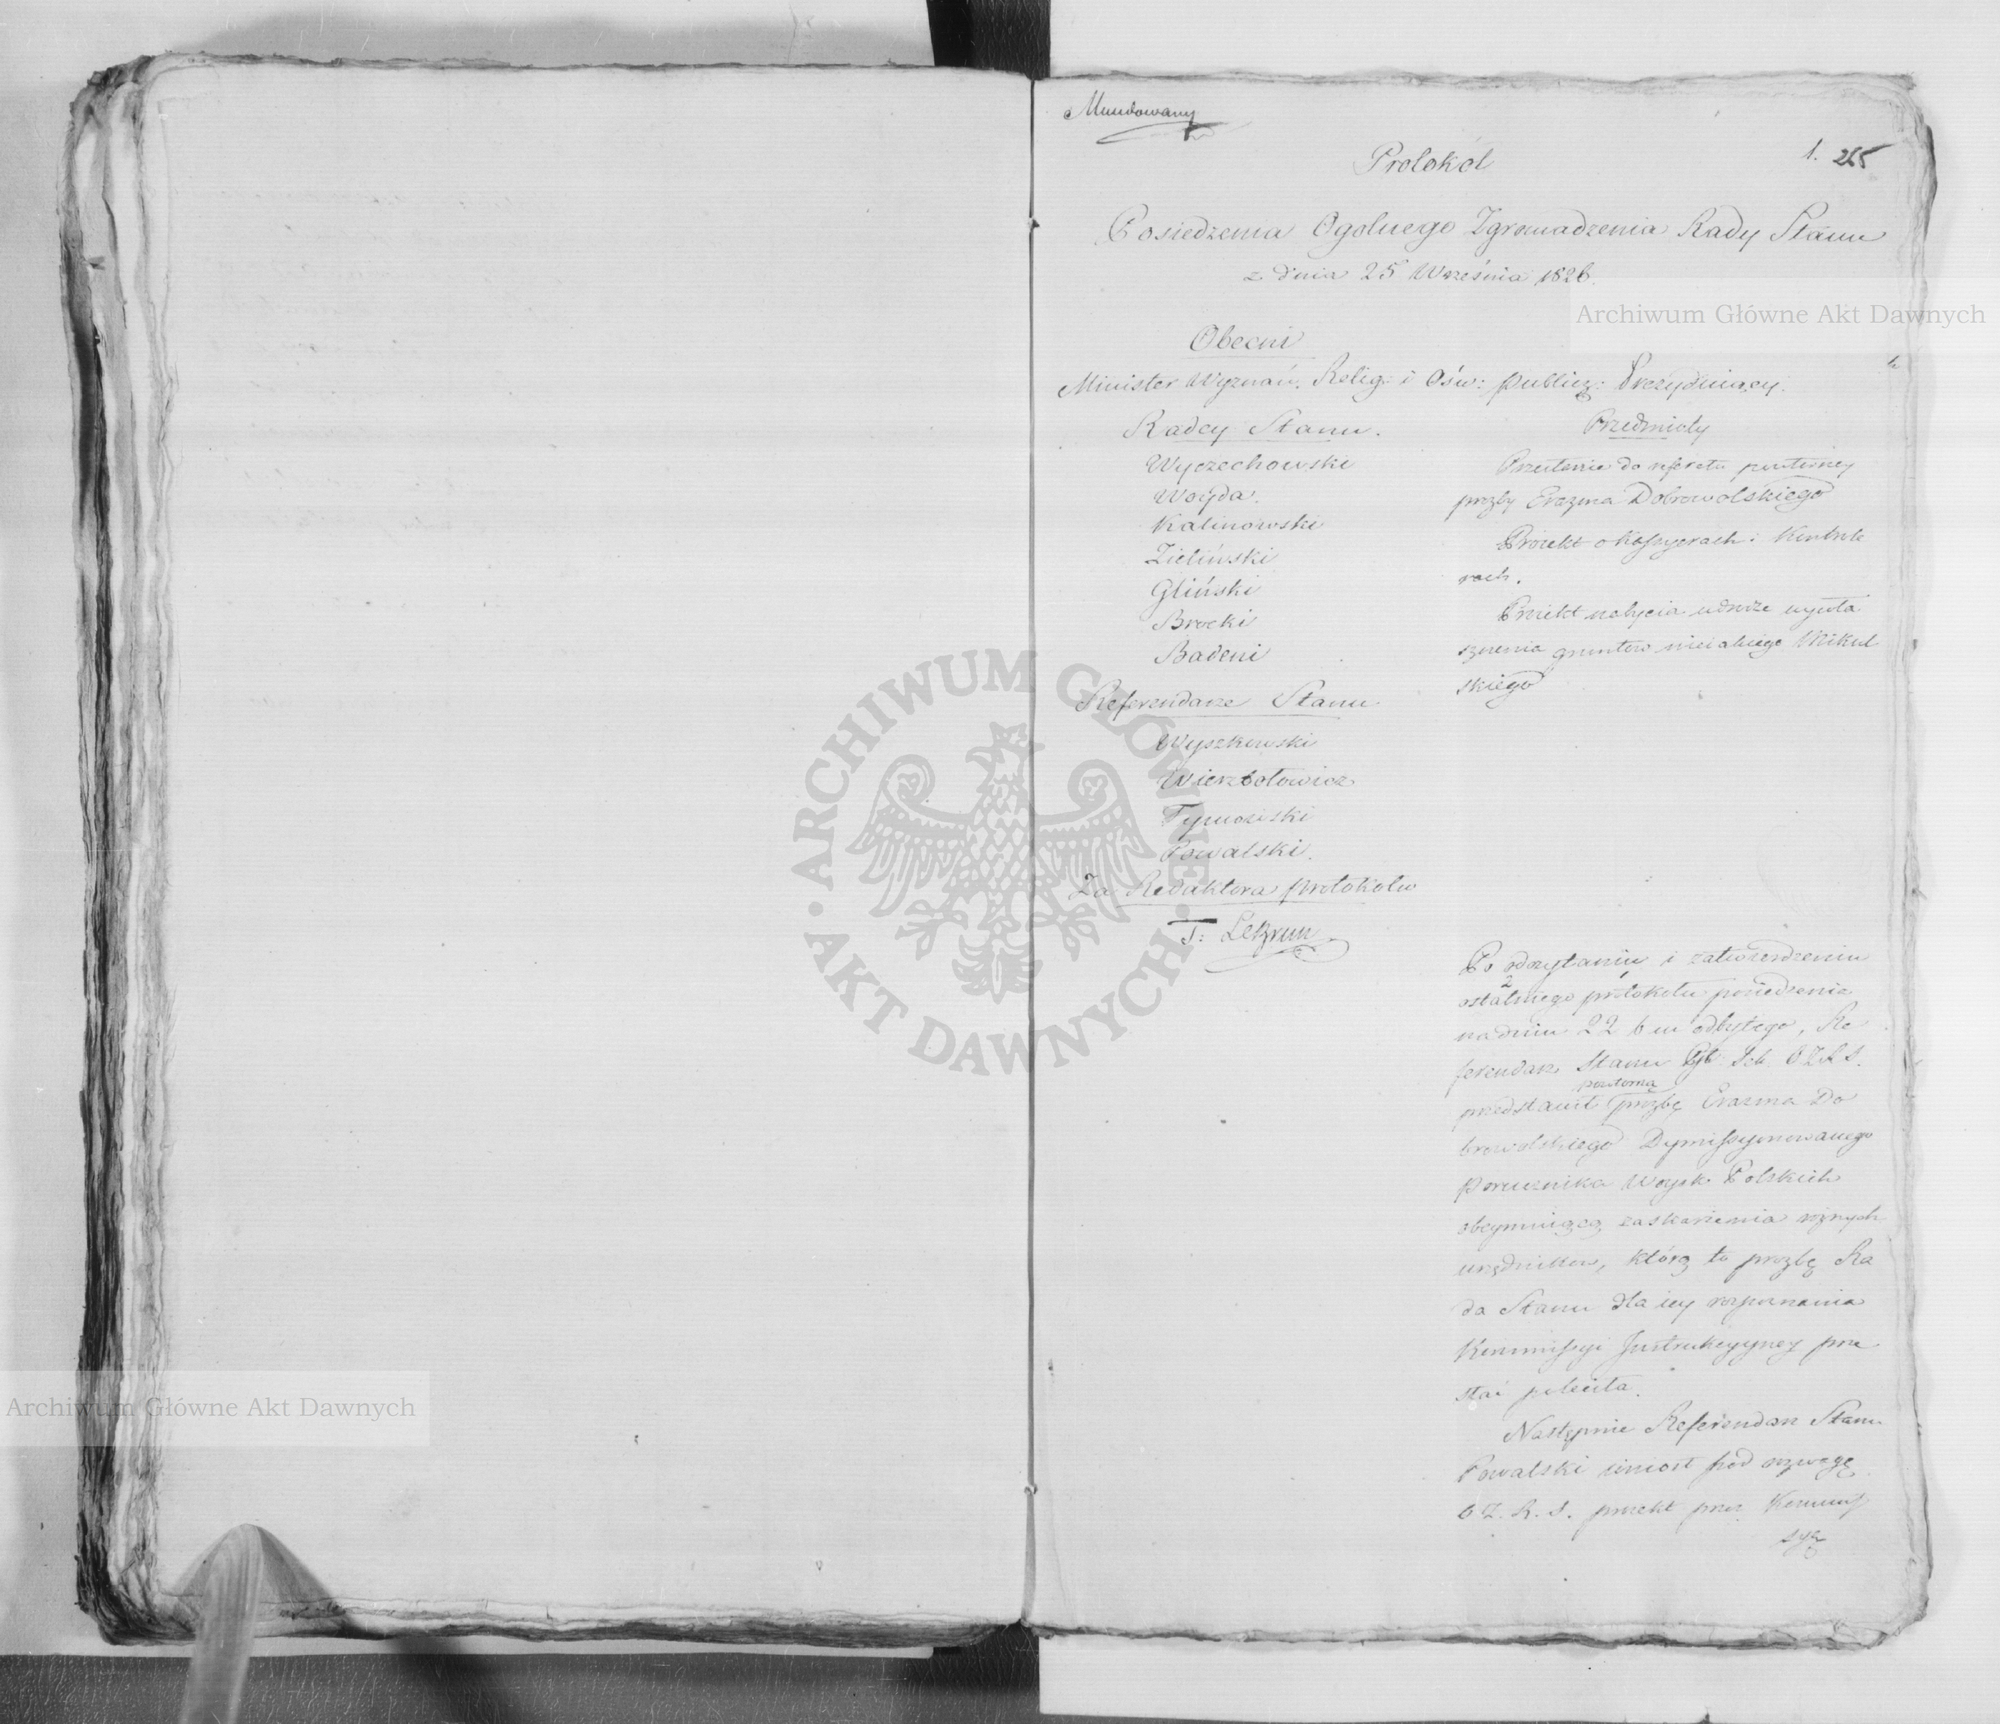 Mundowany
1. 265
Protokół
Posiedzenia Ogolnego Zgromadzenia Rady Stanu
z dnia 25 Września 1826.
Obecni
Minister Wyznań. Relig: i Ośw: publicz: Prezydujący.
Radcy Stanu.
Wyczechowski
Woyda.
Kalinowski
Zieliński
Gliński
Brocki
Badeni
Referendarze Stanu
Wyszkowski
Wierzbołowicz
Tymowski
Powalski.
Za Redaktora protokołu
T: LeBrun
Przedmioty
do referatu powtorney
prozby Erazma Dobrowolskiego
Proiekt o Kassyerach i Kontrole
rach.
Proiekt nabycia wdrodze wywła
szczenia gruntow nieiakiego Mikul
skiego
Po odczytaniu i zatwierdzeniu
ostatniego protokołu posiedzenia
na dniu 22 b m odbytego, Re
ferendarz Stanu O.Z.R.S.
przedstawił powtorną prozbę Erazma Do
browolskiego Dymissyonowanego
Porucznika Woysk Polskich
obeymuiącą zaskarzenia roznych
urzędnikow, którą to prozbę Ra
da Stanu dla iey rozpoznania
Kommissyi Instrukcyyney prze
słać poleciła.
Następnie Referendarz Stanu
Powalski wniosł pod rozwagę
O.Z.R.S. proiekt przez Kommis
syą
Archiwum Główne Akt Dawnych
Archiwum Główne Akt Dawnych
ARCHIWUM GŁÓWNE AKT DAWNYCH